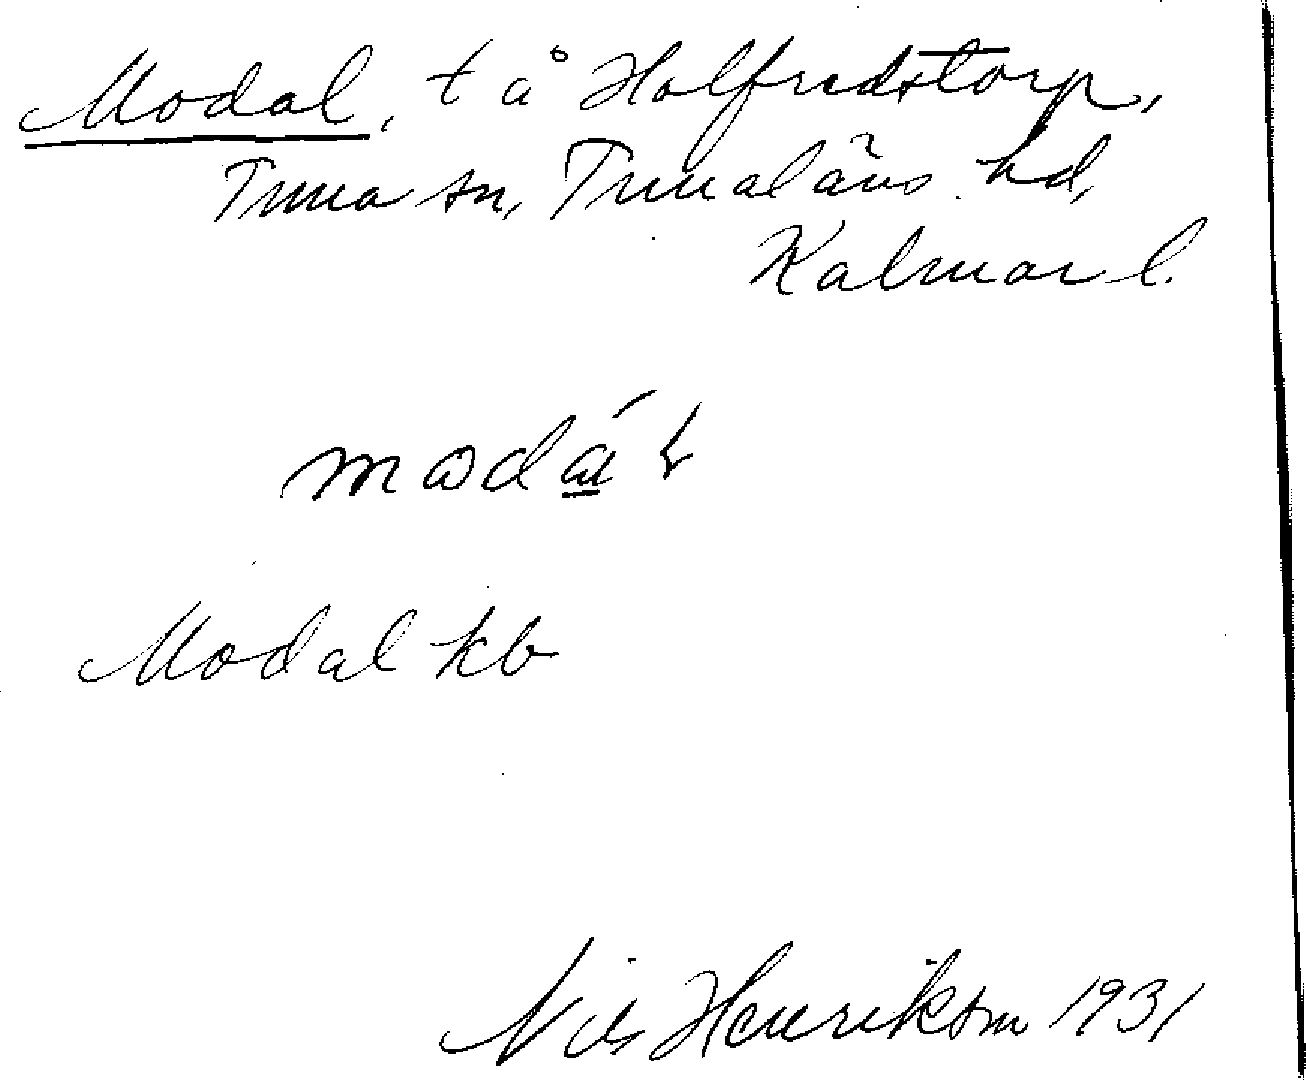 Modal, t å Holfredstorp,
Tuna sn, Tunaläns hd,
Kalmar l.
modá̱ɩ
Modal kb
Nils Henrikson 1931